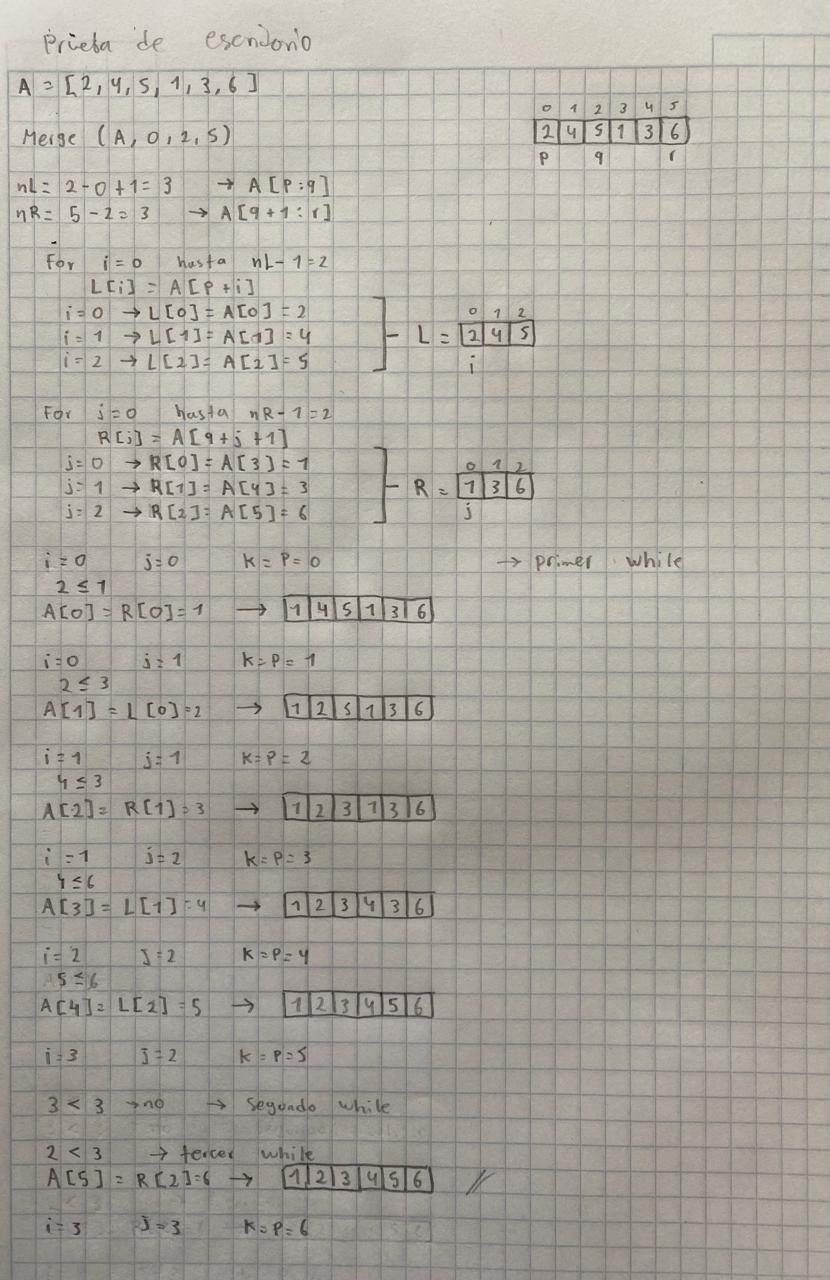 Prueba de escritorio
A = [2, 4, 5, 1, 3, 6]
0 1 2 3 4 5
2 4 5 1 3 6
p q r
Merge (A, 0, 2, 5)
nL = 2-0+1 = 3 → A[p:q]
nR = 5-2 = 3 → A[q+1:r]
For i=0 hasta nL-1=2
L[i] = A[p+i]
i=0 → L[0] = A[0] = 2
i=1 → L[1] = A[1] = 4
i=2 → L[2] = A[2] = 5
0 1 2
L = 2 4 5
i
For j=0 hasta nR-1=2
R[j] = A[q+j+1]
j=0 → R[0] = A[3] = 1
j=1 → R[1] = A[4] = 3
j=2 → R[2] = A[5] = 6
0 1 2
R = 1 3 6
j
i=0 j=0 k=p=0 → primer while
2 ≤ 1
A[0] = R[0] = 1 → 1 4 5 1 3 6
i=0 j=1 k=p=1
2 ≤ 3
A[1] = L[0] = 2 → 1 2 5 1 3 6
i=1 j=1 k=p=2
4 ≤ 3
A[2] = R[1] = 3 → 1 2 3 1 3 6
i=1 j=2 k=p=3
4 ≤ 6
A[3] = L[1] = 4 → 1 2 3 4 3 6
i=2 j=2 k=p=4
5 ≤ 6
A[4] = L[2] = 5 → 1 2 3 4 5 6
i=3 j=2 k=p=5
3 < 3 → no → segundo while
2 < 3 → tercer while
A[5] = R[2] = 6 → 1 2 3 4 5 6 //
i=3 j=3 k=p=6